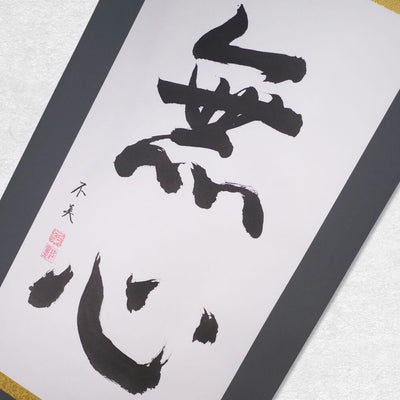 無心
不美